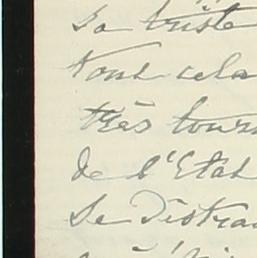 sa triste
Tout cela
très tour
de l'Etat
se distra